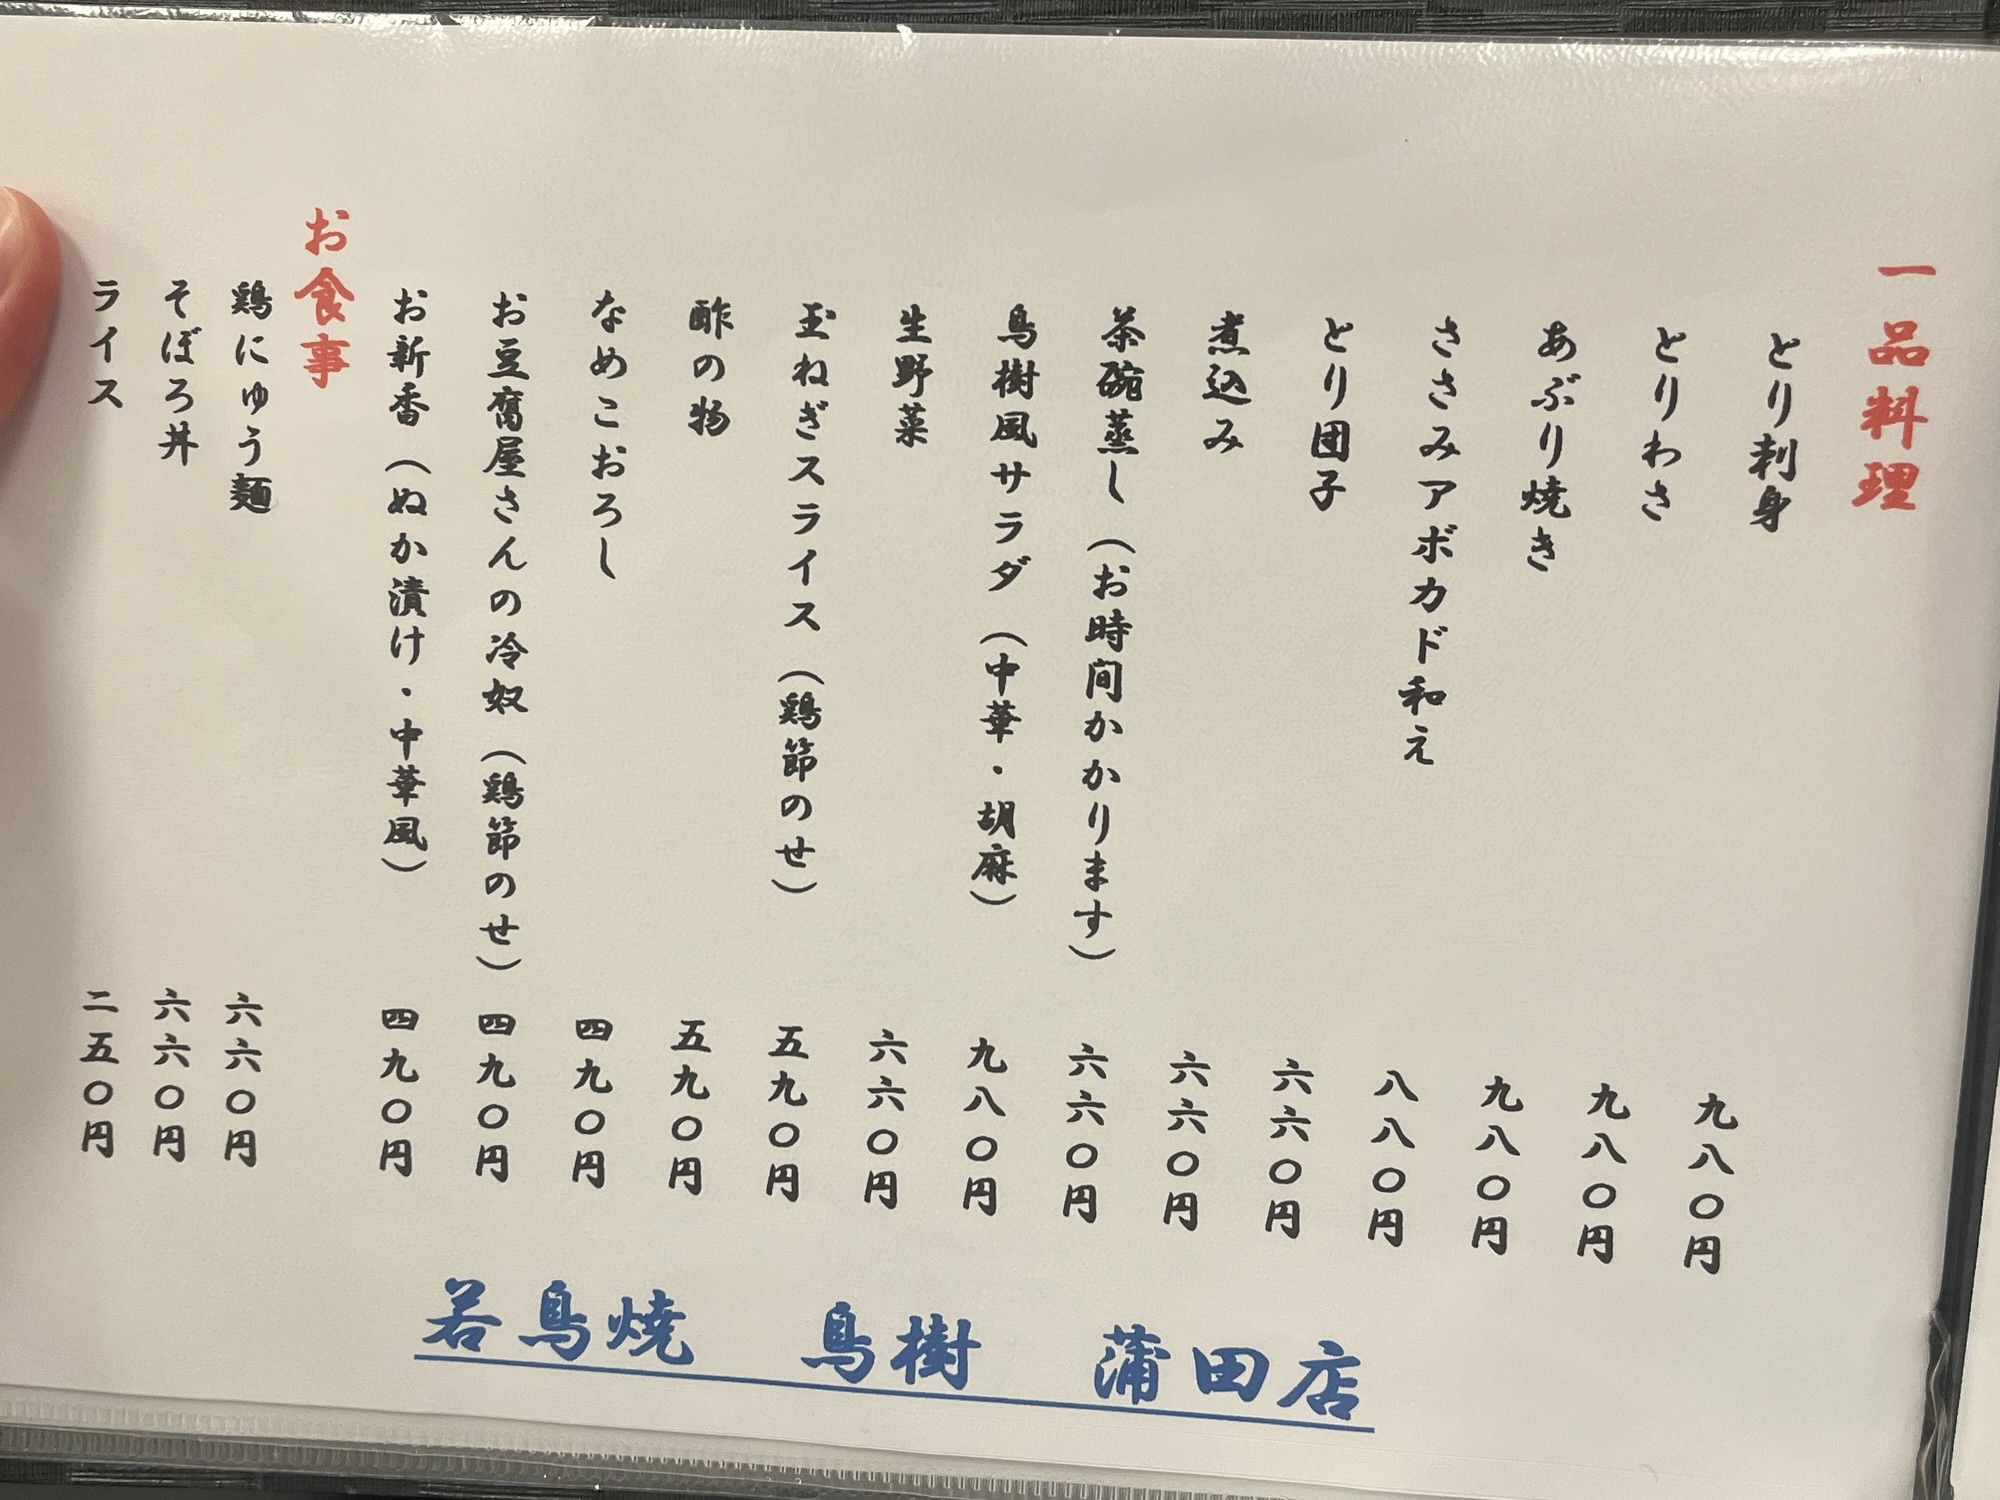 一品料理
とり刺身 九八〇円
とりわさ 九八〇円
あぶり焼き 九八〇円
ささみアボカド和え 八八〇円
とり団子 六六〇円
煮込み 六六〇円
茶碗蒸し(お時間かかります) 六六〇円
鳥樹風サラダ(中華・胡麻) 九八〇円
生野菜 六六〇円
玉ねぎスライス(鶏節のせ) 五九〇円
酢の物 五九〇円
なめこおろし 四九〇円
お豆腐屋さんの冷奴(鶏節のせ) 四九〇円
お新香(ぬか漬け・中華風) 四九〇円
お食事
鶏にゅう麺 六六〇円
そぼろ丼 六六〇円
ライス 二五〇円
若鳥焼 鳥樹 蒲田店